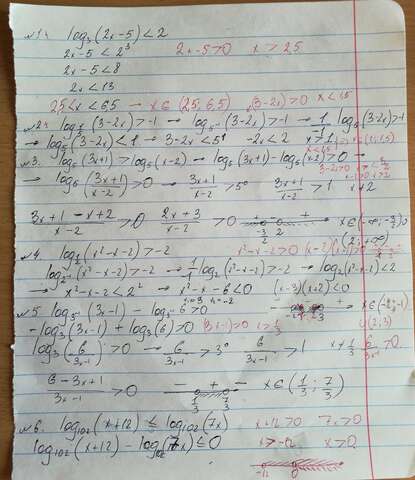 №1. log₃(2x-5)<2
2x-5<2³ 2x-5>0 x>2.5
2x-5<8
2x<13
2.5<x<6.5 → x∈(2.5; 6.5) (3-2x)>0 x<1.5
(3-2x)>-1 → log₅-¹(3-2x)>-1 → log₅(3-2x)>-1
→ log₅(3-2x)<1 → 3-2x<5¹ -2x<2 x>-1
№3. log₅(3x+1)>log₅(x-2) → log₅(3x+1)-log₅(x-2)>0 →
→ log₅(3x+1/x-2)>0 → 3x+1/x-2>5⁰ 3x+1/x-2>1 x≠2
3x+1-x+2/x-2>0 2x+3/x-2>0 + - + -3/2 2 x∈(-∞;-3/2)∪
(2;+∞)
№4 (x²-x-2)>-2 x²-x-2>0
log₂-¹(x²-x-2)>-2 → log₂(x²-x-2)>-2 → log₂(x²-x-2)<2
→ x²-x-2<2² → x²-x-6<0 (x-3)(x+2)<0
№5 log₃-¹(3x-1)-log₃-¹6>0
-log₃(3x-1)+log₃(6)>0 (3x-1)>0 x>1/3 ∪(2;3)
log₃(6/3x-1)>0 → 6/3x-1>3⁰ 6/3x-1>1 x≠1/3 6/3x-1>0
6-3x+1/3x-1>0 - + - 1/3 7/3 x∈(1/3; 7/3)
№6. log₁₀₂(x+12)≤log₁₀₂(7x) x+12>0 7x>0
log₁₀₂(x+12)-log₁₀₂(7x)≤0 x>-12 x>0
-12 0